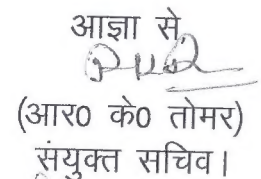 आज्ञा से
(आर0 के0 तोमर)
संयुक्त सचिव।